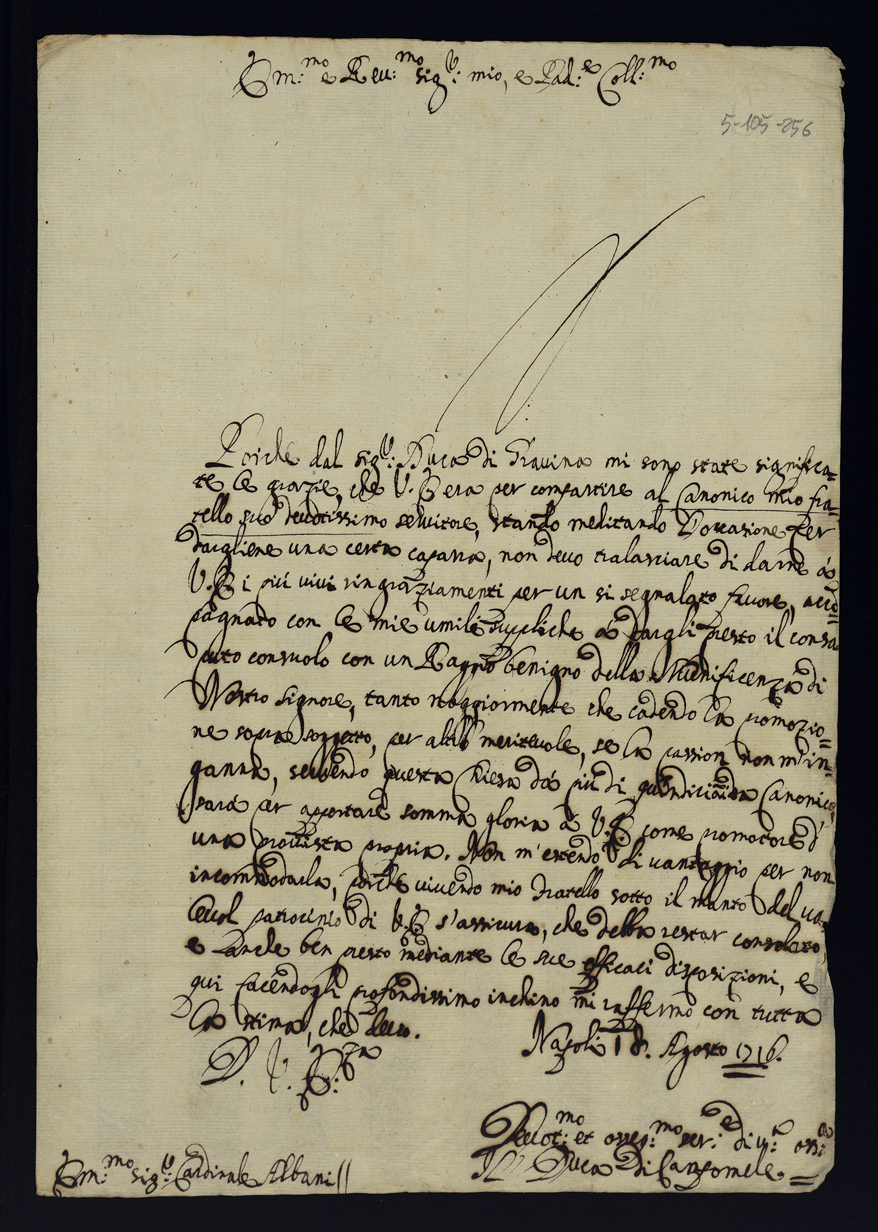 Em:mo e Reu:mo sig:r mio, e Pad:e Coll:mo
5-105-256
Poiche dal sig:r Duca di Gravina mi sono state significa=
te le grazie, che V. E. era per compartire al Canonico mio fra=
tello suo devotissimo servitore, stando meditando l'occasione per
dargliene una certa caparra, non devo tralasciare di darne à
V. E. i più vivi ringraziamenti per un si segnalato favore, acco=
pagnato con le mie umili suppliche à dargli presto il
consuolo con un benigno della Munificenza di
Nostro Signore, tanto maggiormente che cadendo la promozio=
ne sopra soggetto, per altro meritevole, se la passion non m'in=
ganna, servendo questa Chiesa dà più di Canonico,
sarà per apportare somma gloria à V. E. come promotore d'
una propria. Non m'estendo di vantaggio per non
incommodarla, perche vivendo mio Fratello sotto il manto del va=
levol patrocinio di V. E. s'assicura, che debba restar consolato,
e anche ben presto mediante le sue efficaci disposizioni, e
qui facendogli profondissimo inchino mi raffermo con tutta
la stima, che devo.
D. V. E:za
Napoli 18. Agosto 1716.
Devot:mo et osseq:mo ser:e di u:
Il Duca di Canzomele
Em:mo sig:r Cardinale Albani